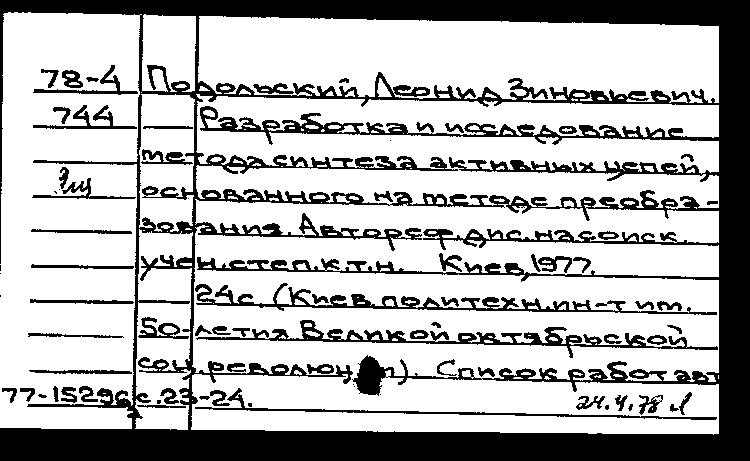 78-4 Подольский, Леонид Зиновьевич.
744 Разработка и исследование
метода синтеза активных цепей,
основанного на методе преобра-
зования. Автореф. дис. на соиск.
учен. степ. к.т.н. Киев, 1977.
24с. (Киев. политехн. ин-т им.
50-летия Великой октябрьской
соц. революц.). Список работ авт
77-15296 с.23-24. 24.4.78